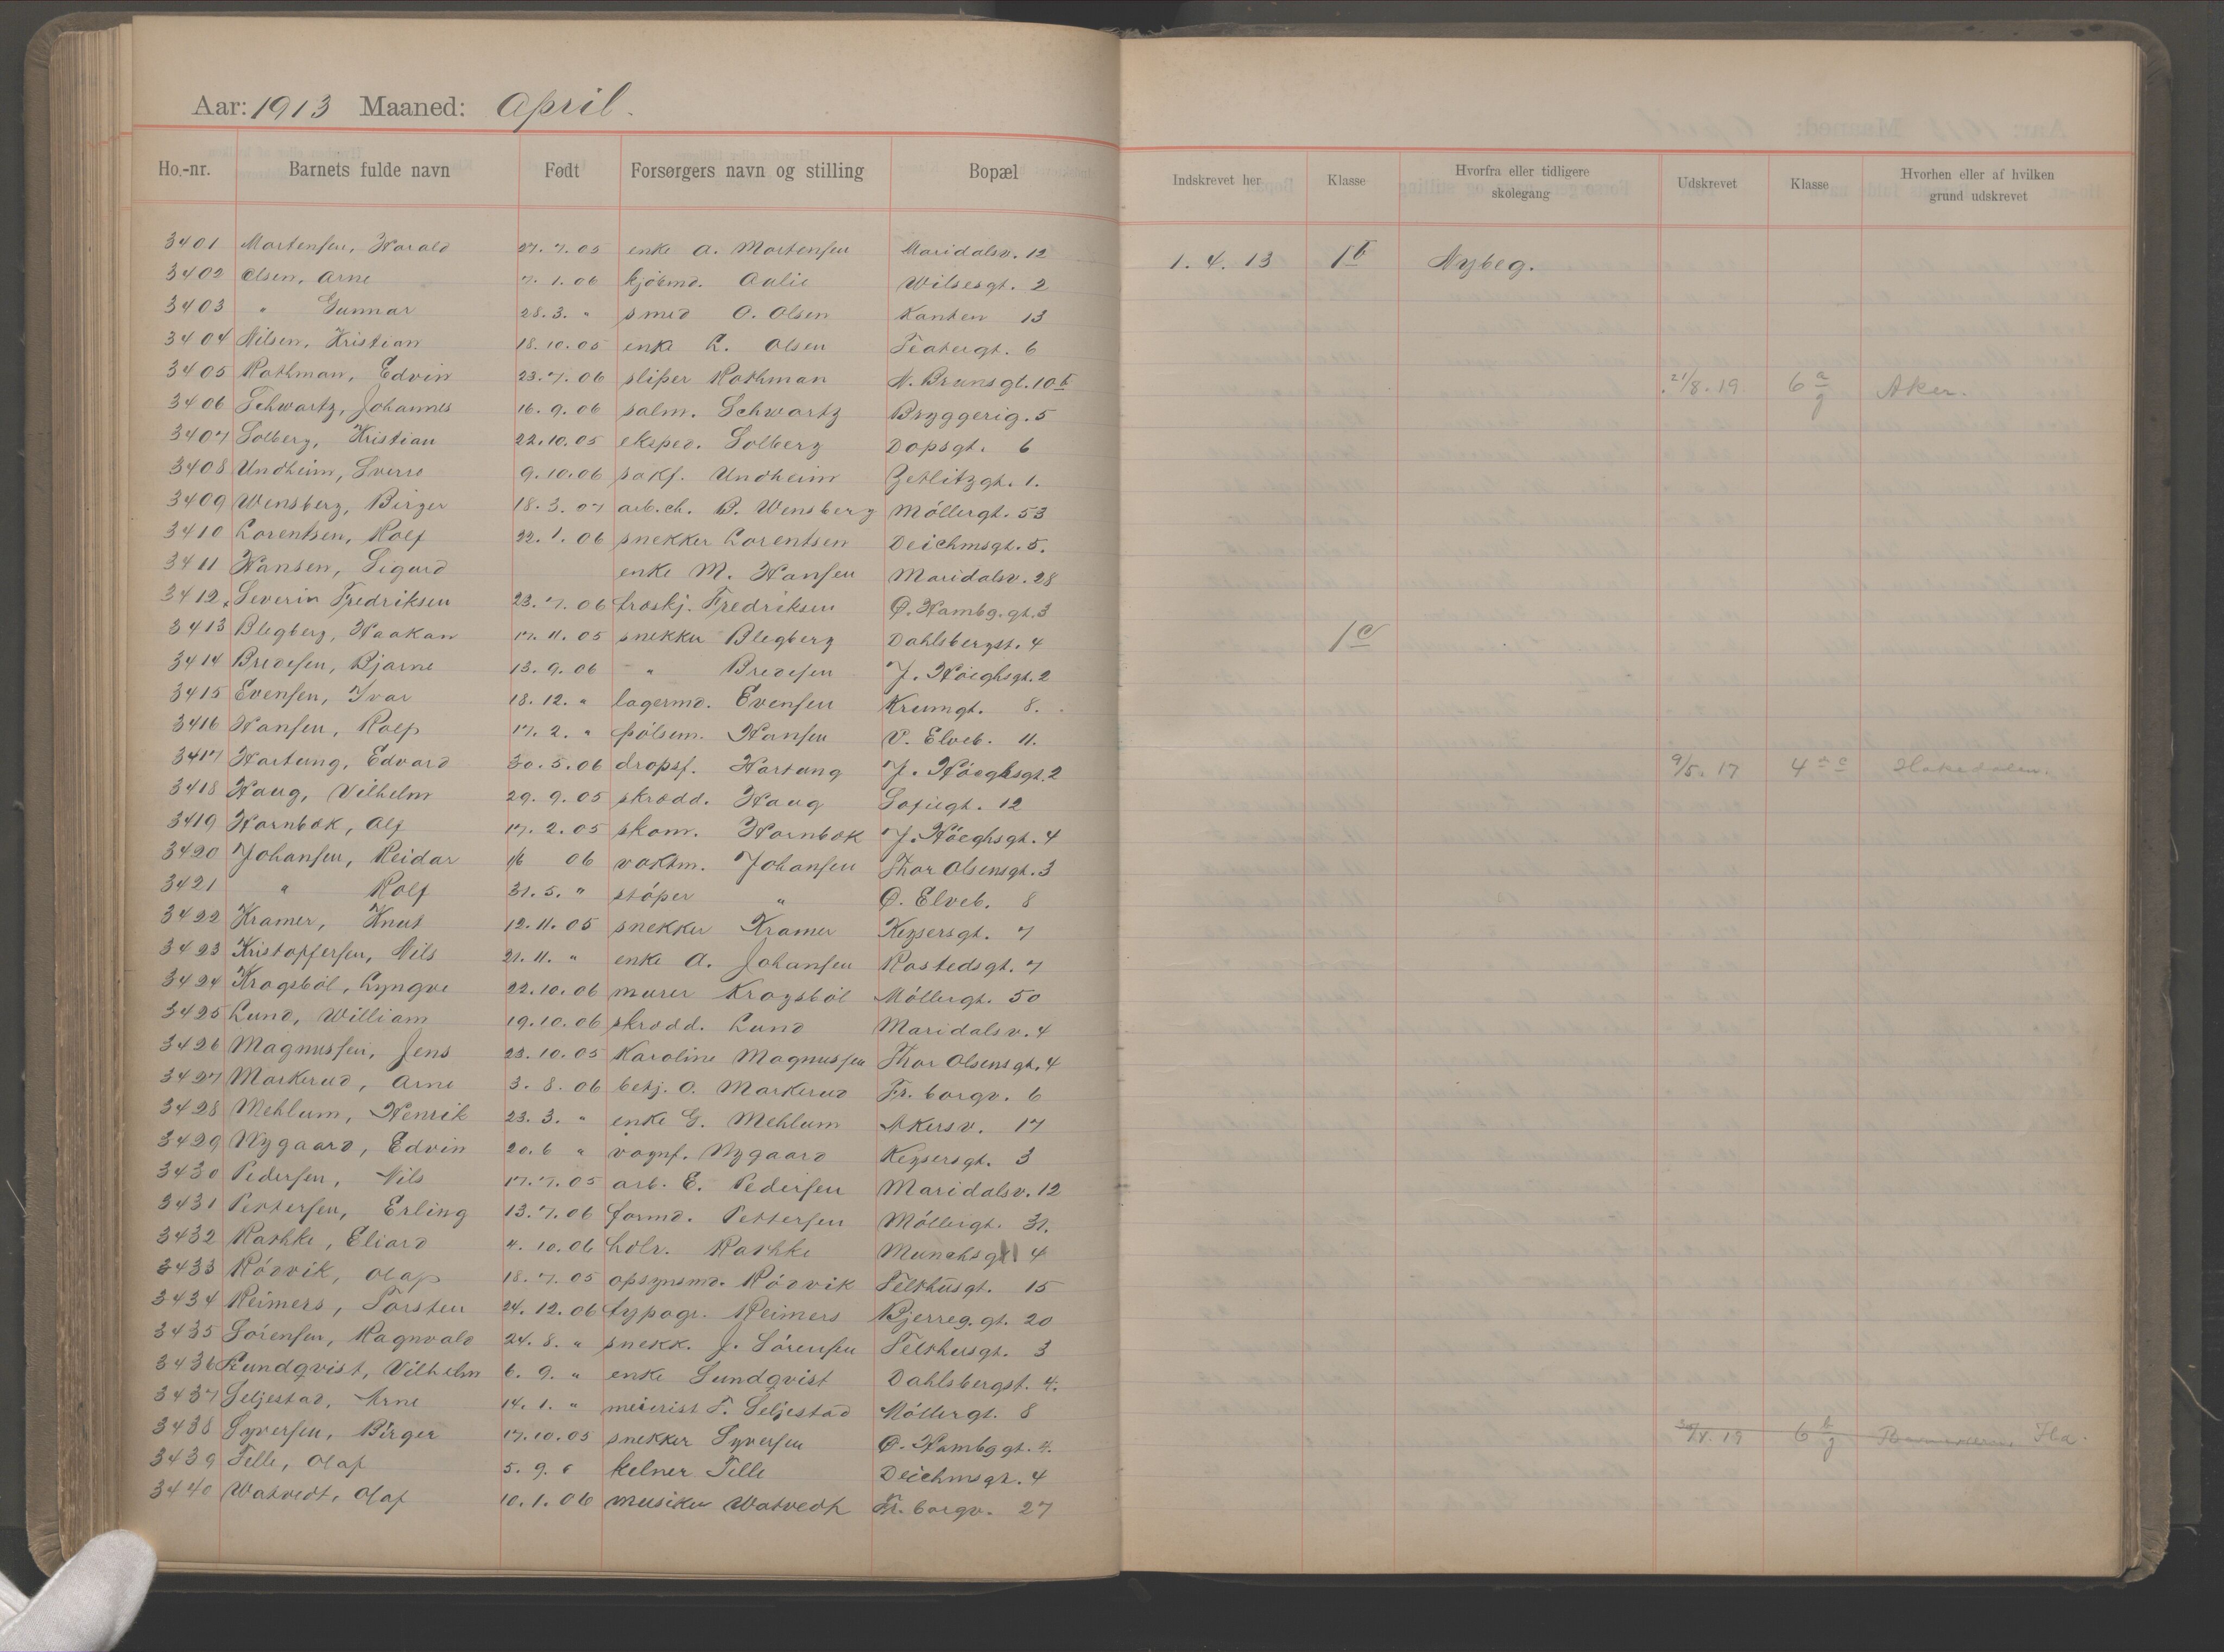 Aar: 1913 Maaned: April.
Ho.-nr. Barnets fulde navn Født Forsørgers navn og stilling Bopæl Indskrevet her Klasse Hvorfra eller tidligere skolegang Udskrevet Klasse Hvorhen eller af hvilken grund udskrevet
3401 Martensen, Harald 27.7.05 enke A. Martensen Maridalsv. 12 1.4.13 1b Nybeg.
3402 Olsen, Arne 7.1.06 kjøbmd. Aalie Wilsesgt. 2
3403 " Gunnar 28.3. " smed O. Olsen Kanten 13
3404 Nilsen, Kristian 18.10.05 enke L. Olsen Teatergt. 6
3405 Rathman, Edvin 23.7.06 sliper Rathman N. Brunsgt. 10b 21/8.19. 6 a/g Aker.
3406 Schwartz, Johannes 16.9.06 salm. Schwartz Bryggerig. 5
3407 Solberg, Kristian 22.10.05 eksped. Solberg Dopsgt. 6
3408 Undheim, Sverre 9.10.06 sakf. Undheim Zetlitzgt. 1.
3409 Wensberg, Birger 18.3.07 arb.ch. P. Wensberg Möllergt. 53
3410 Lorentsen, Rolf 22.1.06 snekker Lorentsen Deichmsgt. 5.
3411 Hansen, Sigurd enke M. Hansen Maridalsv. 28
3412 Severin Fredriksen 23.7.06 droskj. Fredriksen Ø. Hambg.gt. 3
3413 Blegberg, Haakan 17.11.05 snekker Blegberg Dahlsbergst. 4 1c
3414 Bredesen, Bjarne 13.9.06 " Bredesen J. Höeghsgt. 2
3415 Evensen, Ivar 18.12. " lagermd. Evensen Krumgt. 8.
3416 Hansen, Rolf 17.2. " pölsem. Hansen V. Elveb. 11.
3417 Hartung, Edvard 30.5.06 dropsf. Hartung J. Höeghsgt. 2 9/5.17 4 Hakedalen.
3418 Haug, Vilhelm 29.9.05 skrædd. Haug Sofiegt. 12
3419 Hornbæk, Alf 17.2.05 skom. Hornbæk J. Höeghsgt. 4
3420 Johansen, Reidar 06 vaktm. Johansen Thor Olsensgt. 3
3421 " Rolf 31.5. " støper " Ø. Elveb. 8
3422 Kramer, Knut 12.11.05 snekker Kramer Keysersgt. 7
3423 Kristoffersen, Nils 21.11. " enke A. Johansen Rostedsgt. 7
3424 Kragsböl, Lyngve 22.10.06 murer Kragsböl Möllergt. 50
3425 Lund, William 19.10.06 skrædd. Lund Maridalsv. 4
3426 Magnussen, Jens 23.10.05 Karoline Magnussen Thor Olsensgt. 4
3427 Markerud, Arne 3.8.06 betj. O. Markerud Fr. borgv. 6
3428 Mehlum, Henrik 23.3. " enke G. Mehlum Akersv. 17
3429 Nygaard, Edvin 20.6 " vognf. Nygaard Keysersgt. 3
3430 Pedersen, Nils 17.7.05 arb. E. Pedersen Maridalsv. 12
3431 Pettersen, Erling 13.7.06 formd. Pettersen Möllergt. 31.
3432 Rathke, Eliard 4.10.06 hdlr. Rathke Munchsgt 4
3433 Rödvik, Olaf 18.7.05 opsynsmd. Rödvik Telthusgt. 15
3434 Reimers, Torsten 24.12.06 typogr. Reimers Bjerreg.gt. 20
3435 Sörensen, Ragnvald 24.8. " snekk. J. Sörensen Telthusgt. 3
3436 Sundqvist, Vilhelm 6.9. " enke Sundqvist Dahlsbergst. 4.
3437 Seljestad, Arne 14.1. " meierist T. Seljestad Möllergt. 8
3438 Syversen, Birger 17.10.05 snekker Syversen Ø. Hambggt. 4. 19 6 b/g Ila.
3439 Telle, Olaf 5.9. 6 kelner Telle Deichmsgt. 4
3440 Watvedt, Olaf 10.1.06 musiker Watvedt Fr. borgv. 27